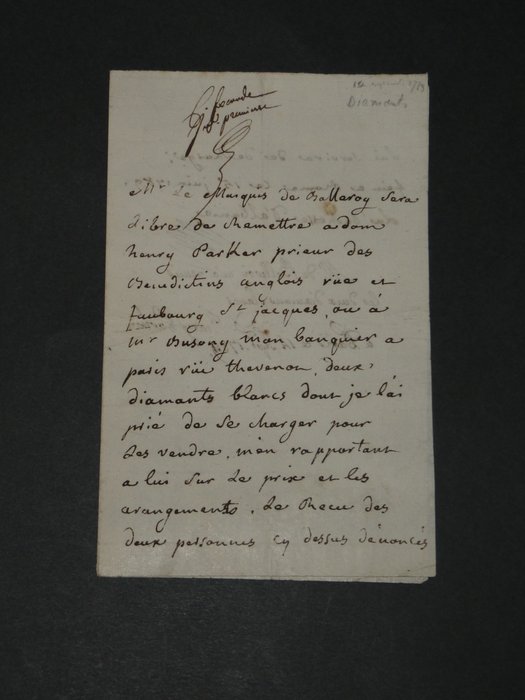 Seconde
premiere
Diamants
Mr Le Marquis de Balleroy Sera
Libre de Remettre a dom
henry Parker prieur des
Benedictins anglois rüe et
faubourg St jacques, ou à
mr Busony mon banquier a
paris rüe thevenon, deux
diamants blancs dont je l'ai
prié de se charger pour
Les vendre, m'en rapportant
a lui sur Le prix et les
arangements. Le Recu des
deux personnes cy dessus dénoncés